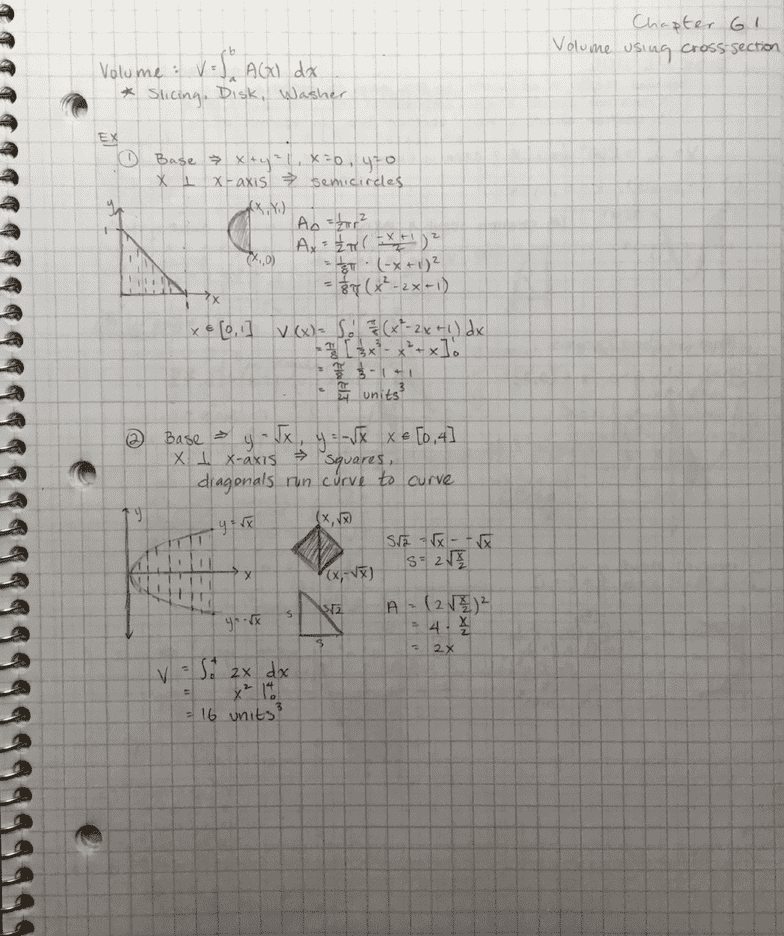 Chapter 6.1
Volume using cross-section
Volume : V = ∫ₐᵇ A(x) dx
* Slicing, Disk, Washer
EX
① Base ⇒ x+y=1, x=0, y=0
X ⊥ x-axis ⇒ semicircles
y
1
1
x
(X,Y,)
(X,0)
A = ½πr²
Aₓ = ½π( (-x+1)/2 )²
= ⅛π · (-x+1)²
= ⅛π (x² - 2x + 1)
x ∈ [0,1] V(x) = ∫₀¹ π/8 (x² - 2x + 1) dx
= π/8 [ ⅓x³ - x² + x ]₀¹
= π/8 ⅓ - 1 + 1
= π/24 units³
② Base ⇒ y = √x, y = -√x x ∈ [0,4]
X ⊥ x-axis ⇒ squares,
diagonals run curve to curve
y
y = √x
x
y = -√x
(x, √x)
(x, -√x)
s
s√2
s
S√2 = √x - -√x
S = 2√(x/2)
A = (2√(x/2))²
= 4 · x/2
= 2x
V = ∫₀⁴ 2x dx
= x² |₀⁴
= 16 units³